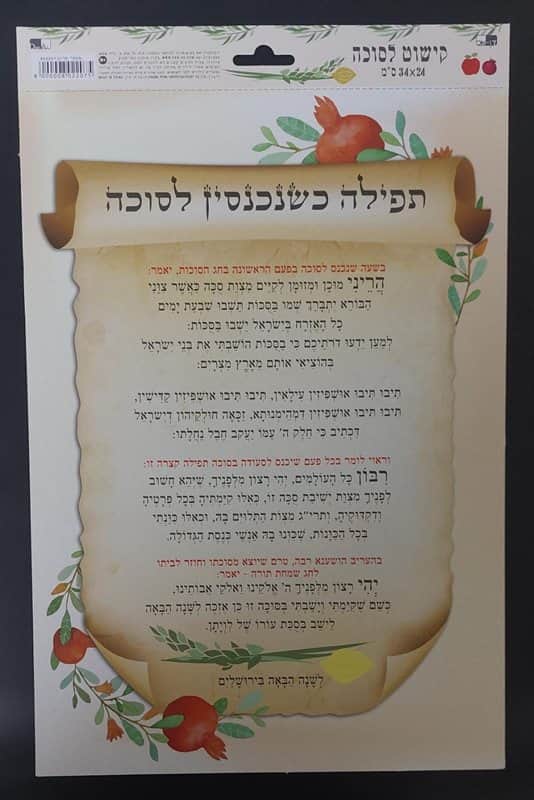 קישוט לסוכה
34×24 ס"מ
תפילה כשנכנסין לסוכה
בשעה שנכנס לסוכה בפעם הראשונה בחג הסוכות, יאמר:
הֲרֵינִי מוּכָן וּמְזוּמָּן לְקַיֵּים מִצְוַת סֻכָּה כַּאֲשֶׁר צִוַּנִי
הַבּוֹרֵא יִתְבָּרֵךְ שְׁמוֹ בַּסֻּכּוֹת תֵּשְׁבוּ שִׁבְעַת יָמִים
כָּל הָאֶזְרָח בְּיִשְׂרָאֵל יֵשְׁבוּ בַּסֻּכּוֹת:
לְמַעַן יֵדְעוּ דֹרֹתֵיכֶם כִּי בַסֻּכּוֹת הוֹשַׁבְתִּי אֶת בְּנֵי יִשְׂרָאֵל
בְּהוֹצִיאִי אוֹתָם מֵאֶרֶץ מִצְרָיִם:
תִּיבוּ תִּיבוּ אוּשְׁפִּיזִין עִילָּאִין, תִּיבוּ תִּיבוּ אוּשְׁפִּיזִין קַדִּישִׁין,
תִּיבוּ תִּיבוּ אוּשְׁפִּיזִין דִּמְהֵימְנוּתָא, זַכָּאָה חוּלְקֵיהוֹן דְּיִשְׂרָאֵל
דִּכְתִיב כִּי חֵלֶק ה' עַמּוֹ יַעֲקֹב חֶבֶל נַחֲלָתוֹ:
וראוי לומר בכל פעם שיכנס לסעודה בסוכה תפילה קצרה זו:
רִבּוֹן כָּל הָעוֹלָמִים, יְהִי רָצוֹן מִלְּפָנֶיךָ, שֶׁיְּהֵא חָשׁוּב
לְפָנֶיךָ מִצְוַת יְשִׁיבַת סֻכָּה זוֹ, כְּאִלּוּ קִיַּמְתִּיהָ בְּכָל פְּרָטֶיהָ
וְדִקְדּוּקֶיהָ, וְתַרְיַ"ג מִצְוֹת הַתְּלוּיִם בָּהּ, וּכְאִלּוּ כִּוַּנְתִּי
בְּכָל הַכַּוָּנוֹת, שֶׁכִּוְּנוּ בָהּ אַנְשֵׁי כְּנֶסֶת הַגְּדוֹלָה.
בהעריב הושענא רבה, טרם שיוצא מסוכתו וחוזר לביתו
לחג שמחת תורה - יאמר:
יְהִי רָצוֹן מִלְּפָנֶיךָ ה' אֱלֹקֵינוּ וֵאלֹקֵי אֲבוֹתֵינוּ,
כְּשֵׁם שֶׁקִּיַּמְתִּי וְיָשַׁבְתִּי בְּסוּכָּה זוֹ כֵּן אֶזְכֶּה לְשָׁנָה הַבָּאָה
לֵישֵׁב בְּסֻכַּת עוֹרוֹ שֶׁל לִוְיָתָן.
לְשָׁנָה הַבָּאָה בִּירוּשָׁלַיִם